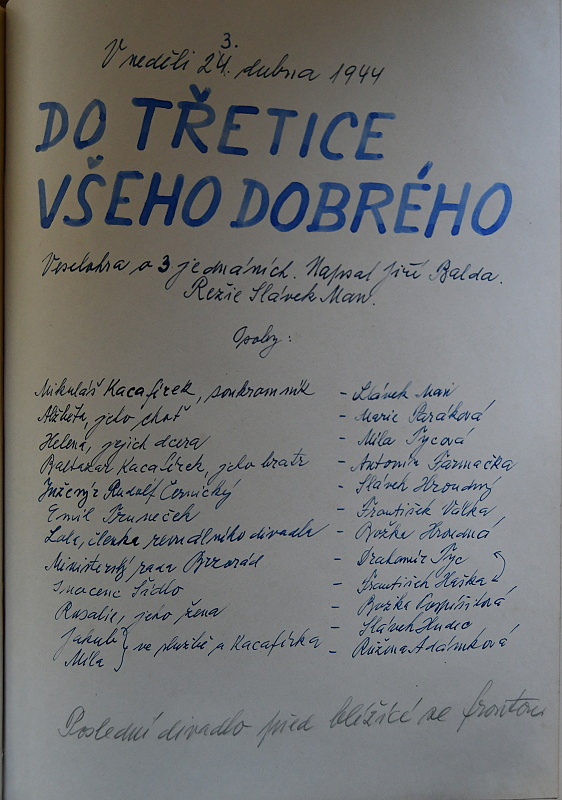 3.
V neděli 24. dubna 1944
DO TŘETICE
VŠEHO DOBRÉHO
Veselohra o 3 jednáních. Napsal Jiří Balda.
Režie Slávek Man.
Osoby:
Mikuláš Kacafírek, soukromník - Slávek Man
Alžběta, jeho choť - Marie
Helena, jejich dcera - Míla Tycová
Baltazar Kacafírek, jeho bratr - Antonín
Inženýr Rudolf Černický - Slávek Hroudný
Emil - František Válka
Lola, členka revuálního divadla - Božka Hroudná
Ministerský rada Brzorád - Drahomír Tyc
Inocenc Šidlo - František Haška
Rosalie, jeho žena - Božka Pospíšilová
Jakub } ve službě u Kacafírka - Slávek
Míla - Růžena Adámková
Poslední divadlo před blížící se frontou